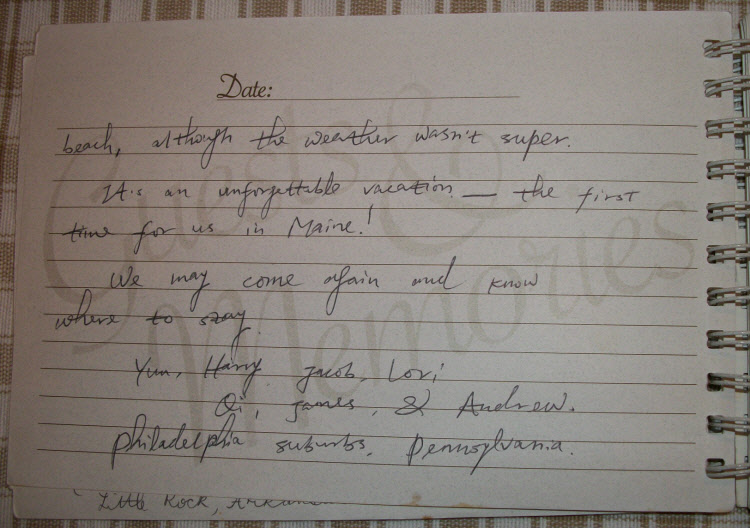 Date:
beach, although the weather wasn't super.
It's an unforgettable vacation — the first
time for us in Maine!
We may come again and know
where to stay.
Yun, Harry, Jacob, Lori
Qi, James, & Andrew.
Philadelphia suburbs, Pennsylvania.
Little Rock, Arkansas
Guests & Memories